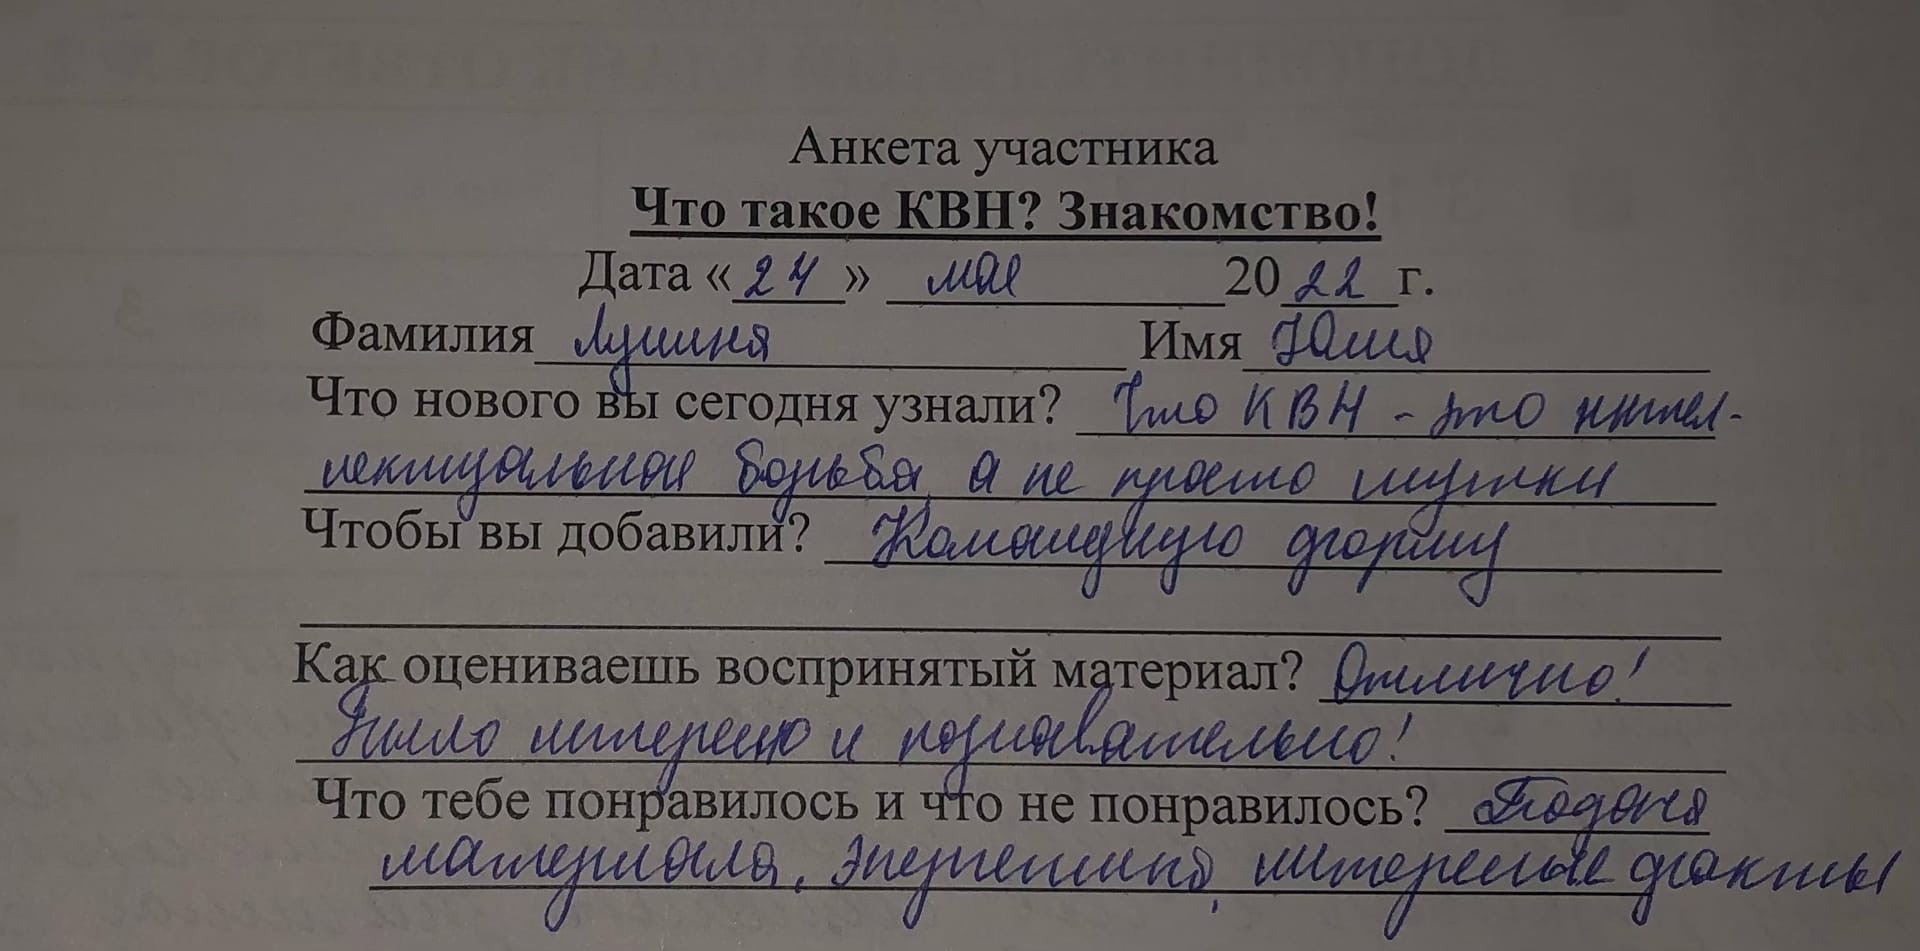 Анкета участника
Что такое КВН? Знакомство!
Дата «24» мая 2022 г.
Фамилия Лушня Имя Юлия
Что нового вы сегодня узнали? Что КВН - это интел-
лектуальная борьба, а не просто шутки
Чтобы вы добавили? Командную форму
Как оцениваешь воспринятый материал? Отлично!
Было интересно и познавательно!
Что тебе понравилось и что не понравилось? Подача
материала, энергетика, интересные факты